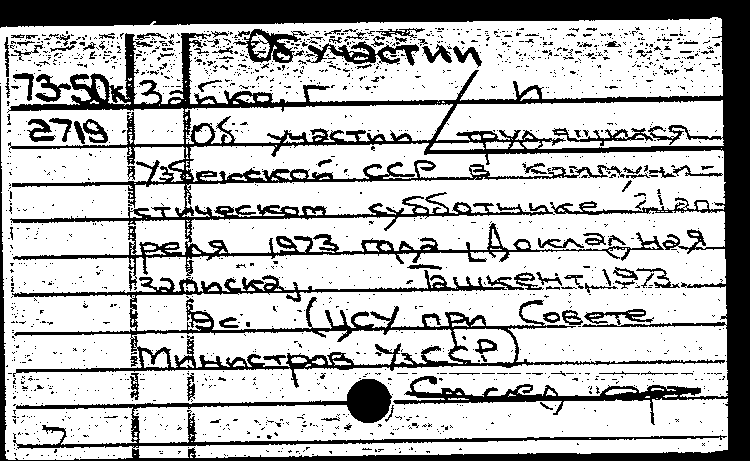 Об участии
73-50к Зайко, Г И
2719 Об участии трудящихся
Узбекской ССР в коммуни-
стическом субботнике 21 ап-
реля 1973 года. [Докладная
записка]. Ташкент, 1973.
9с. (ЦСУ при Совете
Министров УзССР).
См след карт